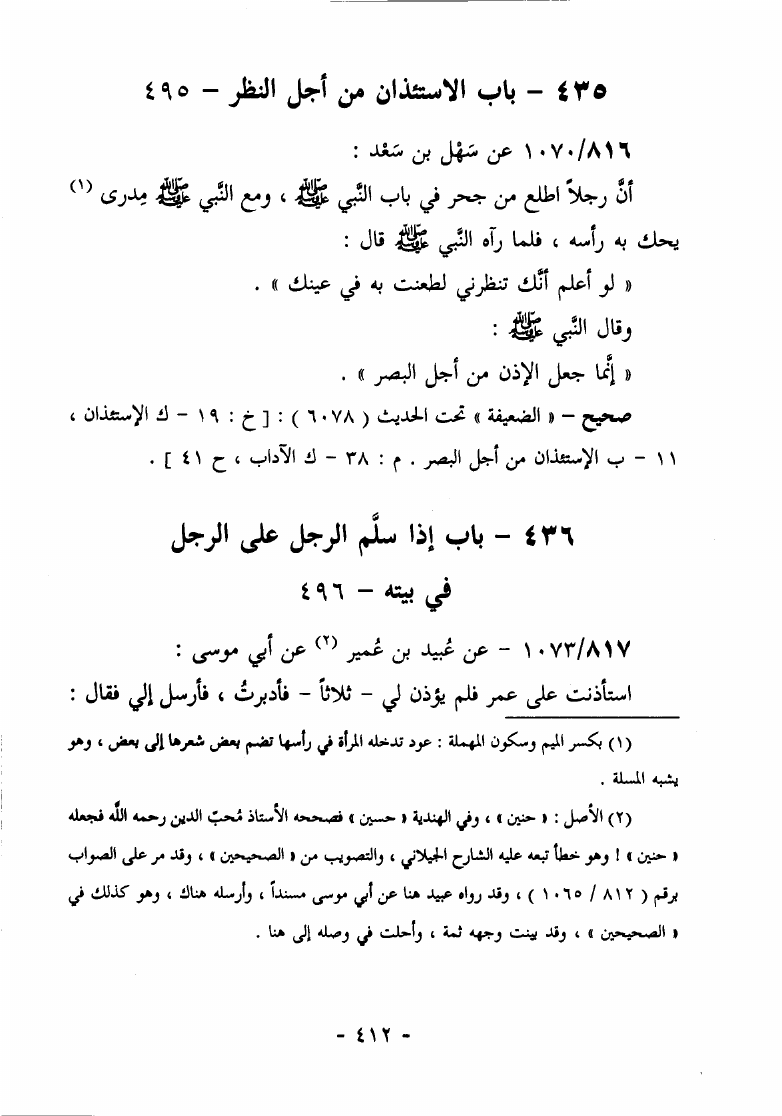 ٤٣٥ – باب الاستئذان من أجل النظر – ٤٩٥
١٠٧٠/٨١٦ عن سَهْل بن سَعْد :
أنَّ رجلاً اطلع من جحر في باب النَّبي ﷺ ، ومع النَّبي ﷺ مِدرى (١)
يحك به رأسه ، فلما رآه النَّبي ﷺ قال :
« لو أعلم أنَّك تنظرني لطعنت به في عينك » .
وقال النَّبي ﷺ :
« إنَّما جعل الإذن من أجل البصر » .
صحيح – « الضعيفة » تحت الحديث ( ٦٠٧٨ ) : [ خ : ١٩ - ك الإستئذان ،
١١ - ب الإستئذان من أجل البصر . م : ٣٨ - ك الآداب ، ح ٤١ ] .
٤٣٦ – باب إذا سلَّم الرجل على الرجل
في بيته – ٤٩٦
١٠٧٣/٨١٧ – عن عُبيد بن عُمير (٢) عن أبي موسى :
استأذنت على عمر فلم يؤذن لي – ثلاثاً – فأدبرتُ ، فأرسل إلي فقال :
(١) بكسر الميم وسكون المهملة : عود تدخله المرأة في رأسها تضم بعض شعرها إلى بعض ، وهو
يشبه المسلة .
(٢) الأصل : « حنين » ، وفي الهندية « حسين » فصححه الأستاذ مُحبّ الدين رحمه الله فجعله
« حنين » ! وهو خطأ تبعه عليه الشارح الجيلاني ، والتصويب من « الصحيحين » ، وقد مر على الصواب
برقم ( ٨١٢ / ١٠٦٥ ) ، وقد رواه عبيد هنا عن أبي موسى مسنداً ، وأرسله هناك ، وهو كذلك في
« الصحيحين » ، وقد بينت وجهه ثمة ، وأحلت في وصله إلى هنا .
- ٤١٢ -